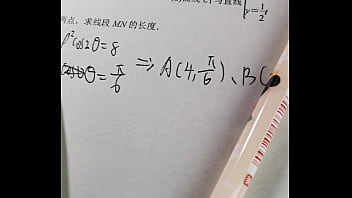 y=\frac{1}{2}t
两点，求线段 MN 的长度.
ρ²cos2θ=8
θ=\frac{π}{6} ⇒ A(4,\frac{π}{6})、B(